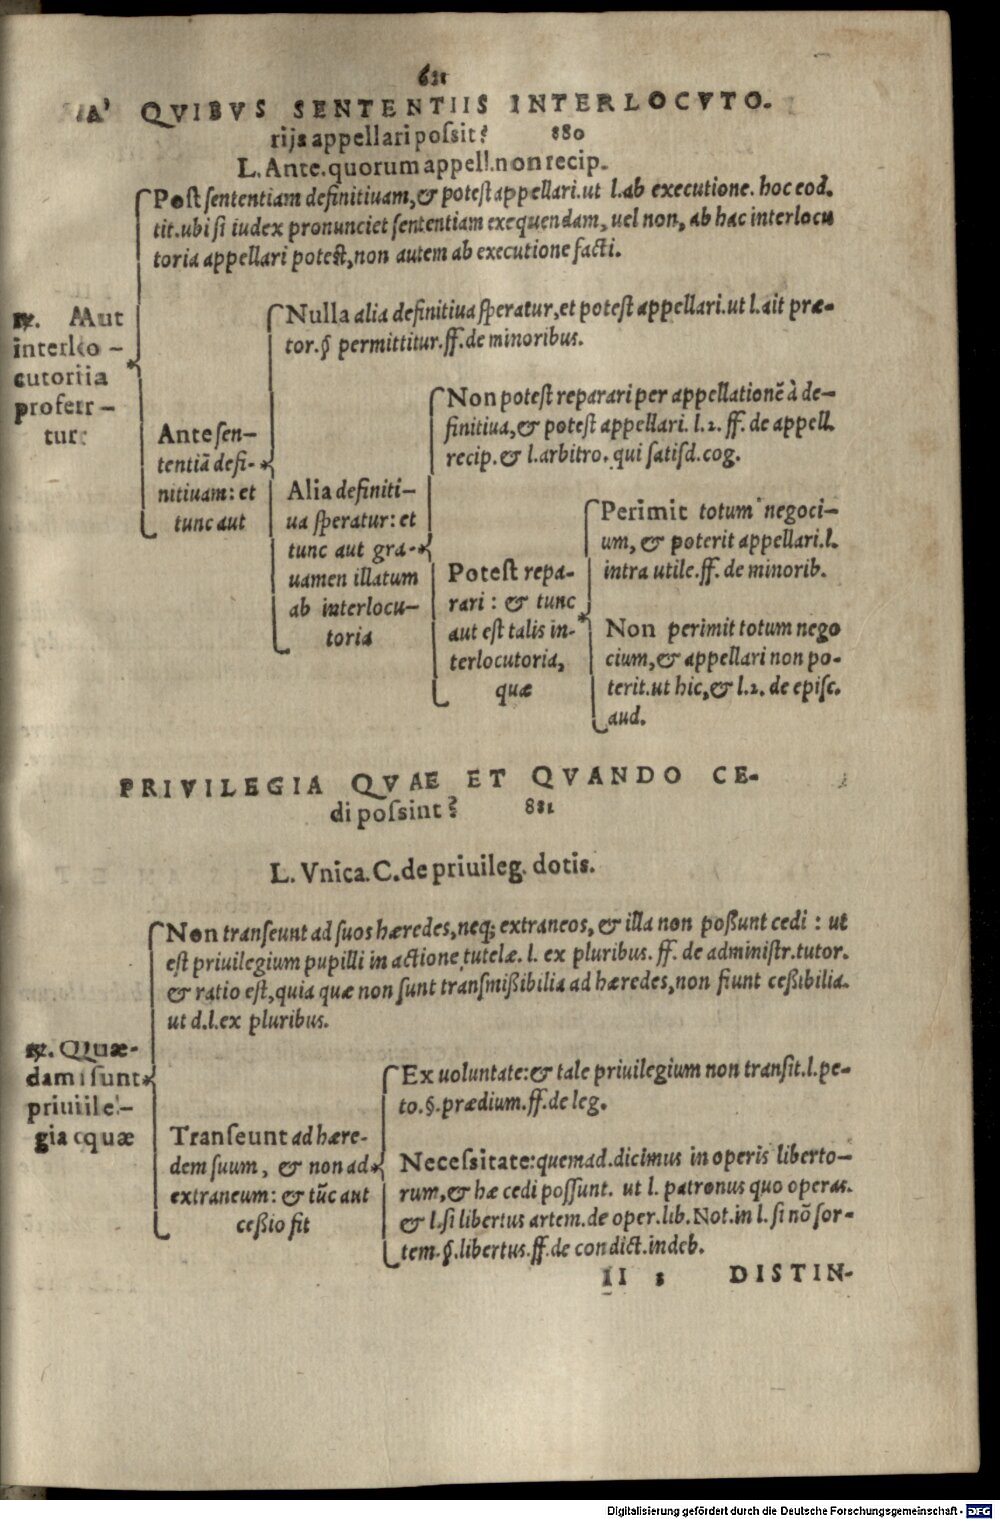 631
A' QVIBVS SENTENTIIS INTERLOCVTO.
rijs appellari possit? 880
L. Ante. quorum appell. non recip.
Post sententiam definitiuam, & potest appellari. ut l. ab executione. hoc eod.
tit. ubi si iudex pronunciet sententiam exequendam, uel non, ab hac interlocu
toria appellari potest, non autem ab executione facti.
℞. Aut
interlo-
cutoria
profer-
tur:
Ante sen-
tentiã defi-
nitiuam: et
tunc aut
Nulla alia definitiua speratur, et potest appellari. ut l. ait præ-
tor. § permittitur. ff. de minoribus.
Alia definiti-
ua speratur: et
tunc aut gra-
uamen illatum
ab interlocu-
toria
Non potest reparari per appellationẽ à de-
finitiua, & potest appellari. l. 2. ff. de appell.
recip. & l. arbitro. qui satisd. cog.
Potest repa-
rari: & tunc
aut est talis in-
terlocutoria,
quæ
Perimit totum negoci-
um, & poterit appellari. l.
intra utile. ff. de minorib.
Non perimit totum nego
cium, & appellari non po-
terit. ut hic, & l. 2. de episc.
aud.
PRIVILEGIA QVAE ET QVANDO CE-
di possint? 881
L. Vnica. C. de priuileg. dotis.
Non transeunt ad suos hæredes, neq; extraneos, & illa non possunt cedi: ut
est priuilegium pupilli in actione tutelæ. l. ex pluribus. ff. de administr. tutor.
& ratio est, quia quæ non sunt transmissibilia ad hæredes, non fiunt cessibilia.
ut d. l. ex pluribus.
℞. Quæ-
dam sunt
priuile-
gia quæ
Transeunt ad hære-
dem suum, & non ad
extraneum: & tũc aut
cessio fit
Ex uoluntate: & tale priuilegium non transit. l. pe-
to. §. prædium. ff. de leg.
Necessitate: quemad. dicimus in operis liberto-
rum, & hæ cedi possunt. ut l. patronus quo operas.
& l. si libertus artem. de oper. lib. Not. in l. si nõ sor-
tem. §. libertus. ff. de condict. indeb.
II 3 DISTIN-
Digitalisierung gefördert durch die Deutsche Forschungsgemeinschaft - DFG